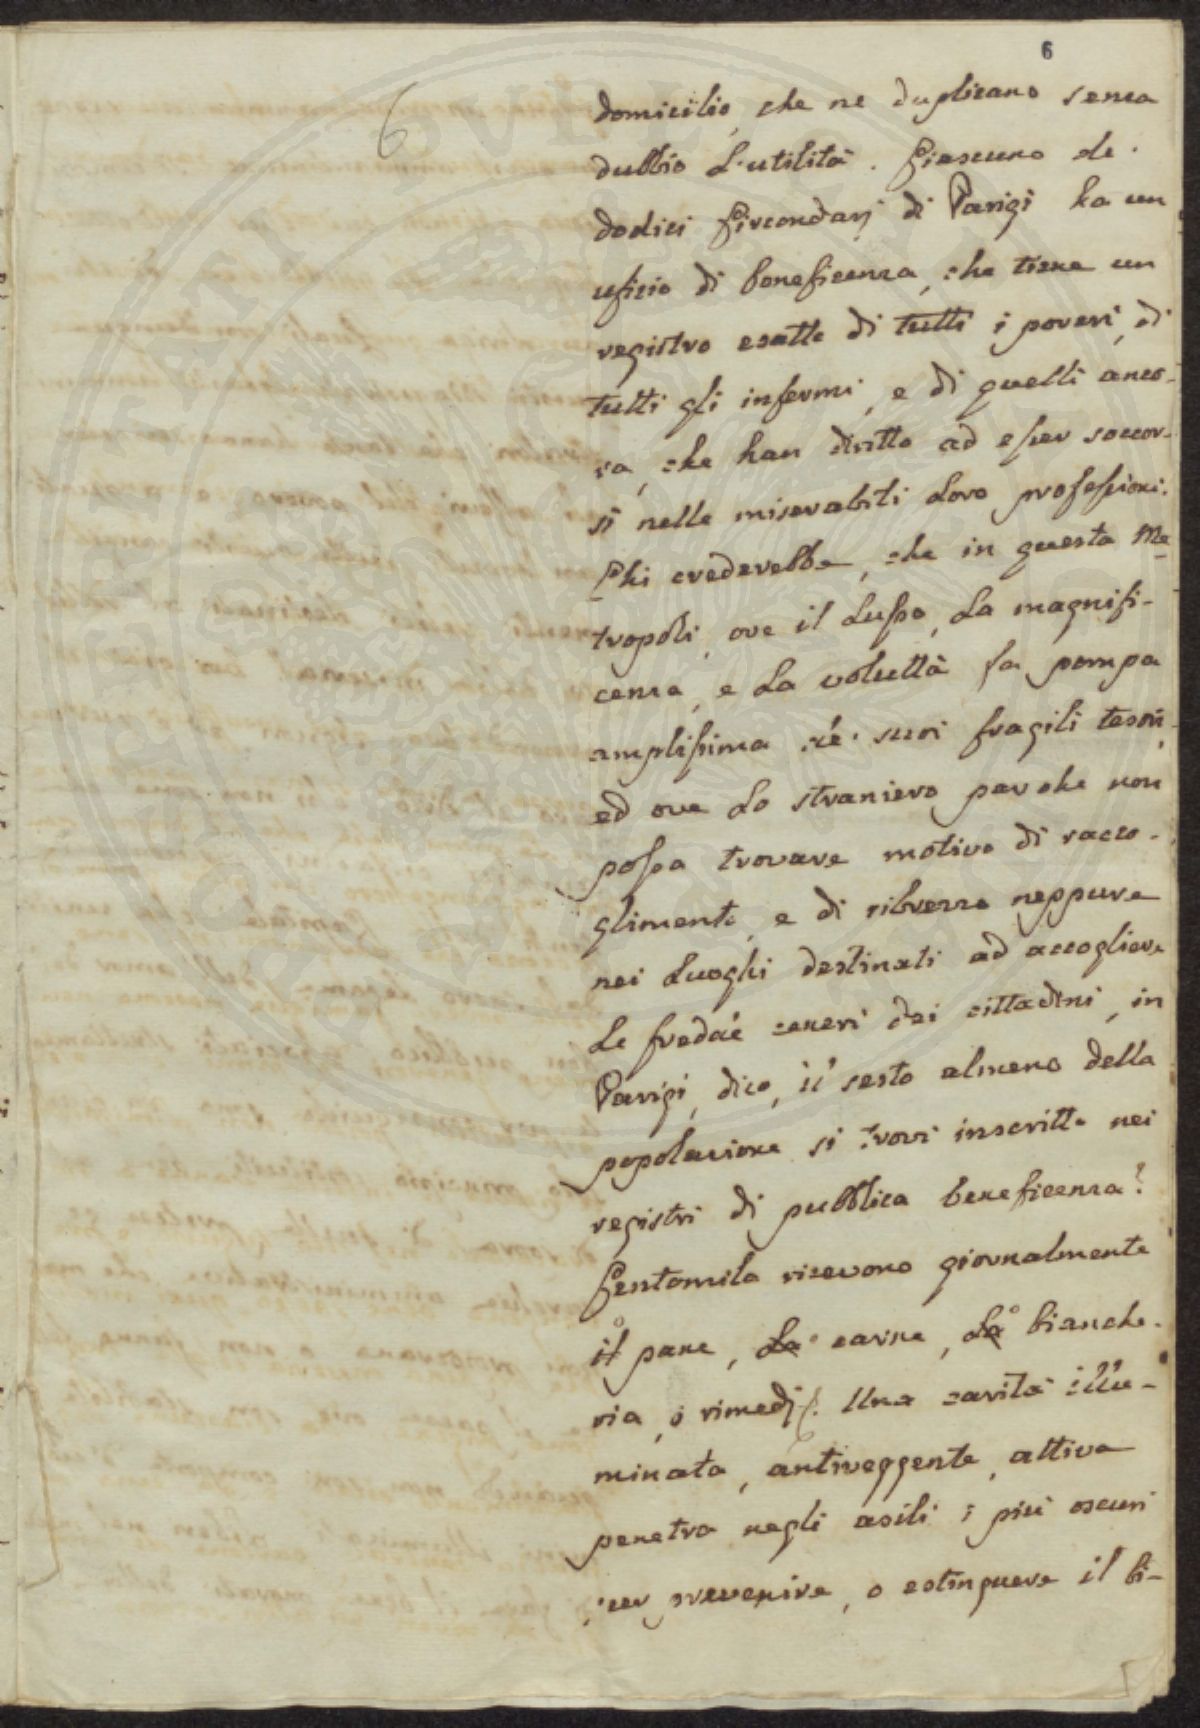 6
6
domicilio, che ne duplicano senza
dubbio l'utilità. Ciascuno de'
dodici Circondarj di Parigi ha un
ufizio di beneficenza, che tiene un
registro esatto di tutti i poveri, di
tutti gli infermi, e di quelli anco-
ra, che han diritto ad esser soccor-
si nelle miserabili loro professioni.
Chi crederebbe, che in questa Me
tropoli, ove il lusso, la magnifi-
cenza, e la voluttà fa pompa
amplissima de' suoi fragili tesori,
ed ove lo straniero par che non
possa trovare motivo di racco-
glimento, e di ribrezzo neppure
nei luoghi destinati ad accogliere
le fredde ceneri dei cittadini, in
Parigi, dico, il sesto almeno della
popolazione si trovi inscritto nei
registri di pubblica beneficenza?
Centomila ricevono giornalmente
il pane, la carne, la bianche-
ria, i rimedj. Una carità illu-
minata, antiveggente, attiva
penetra negli asili i più oscuri
per prevenire, o estinguere il bi-